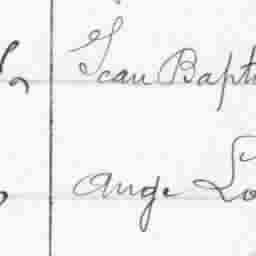 Jean Bapt
Ange Lo